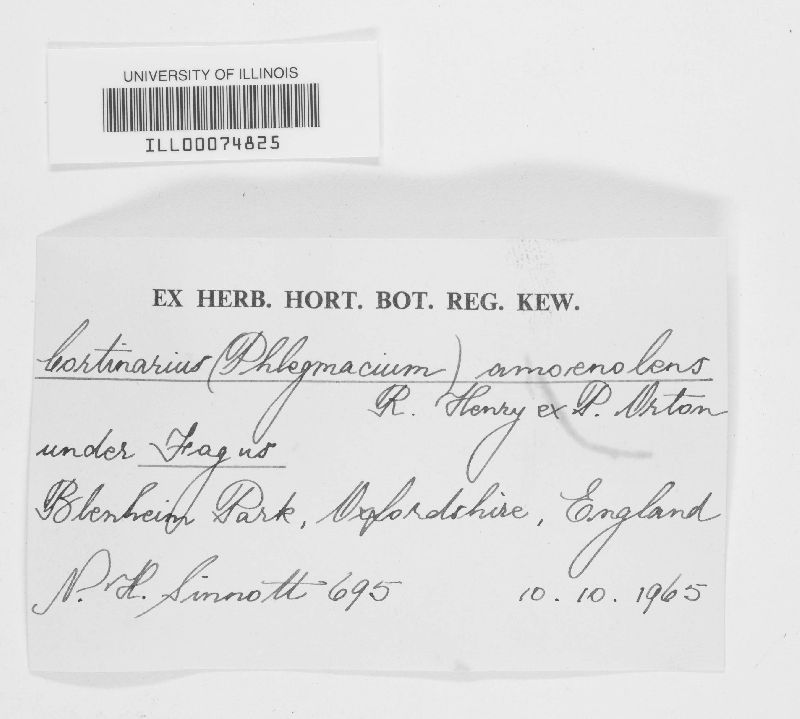 UNIVERSITY OF ILLINOIS
ILL00074825
EX HERB. HORT. BOT. REG. KEW.
Cortinarius (Phlegmacium) amoenolens
R. Henry ex P. Orton
under Fagus
Blenheim Park, Oxfordshire, England
N. H. Sinnott 695 10. 10. 1965